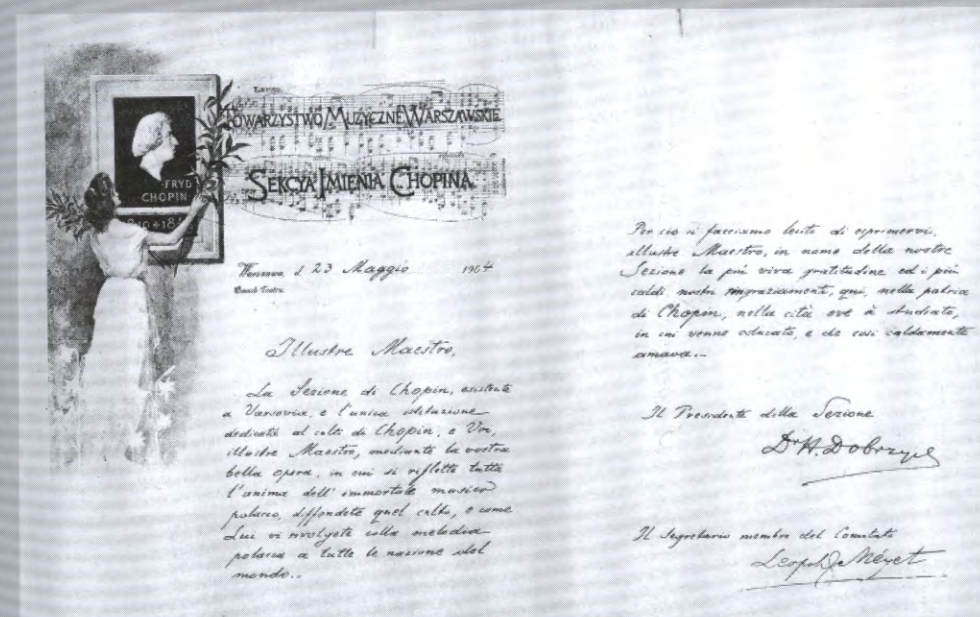 FRYD
CHOPIN
TOWARZYSTWO MUZYCZNE WARSZAWSKIE
SEKCYA IMIENIA CHOPINA
Warszawa, d. 23 Maggio 1904
Gmach Teatru
Illustre Maestro,
La Sezione di Chopin, esistente
a Varsovia, e l'unica istituzione
dedicata al culto di Chopin, e Voi,
illustre Maestro, mediante la vostra
bella opera, in cui si riflette tutta
l'anima dell' immortale musico
polacco, diffondete quel culto, e come
Lui vi rivolgete colla melodia
polacca a tutte le nazione del
mondo..
Per cio ci facciamo lecito di esprimervi,
illustre Maestro, in nome della nostra
Sezione la più viva gratitudine ed i più
caldi nostri ringraziamenti, qui, nella patria
di Chopin, nella città ove à studiato,
in cui venne educato, e che cosi caldamente
amava...
Il Presidente della Sezione
Dr H. Dobrzycki
Il Segretario membro del Comitato
Leopold Méyet